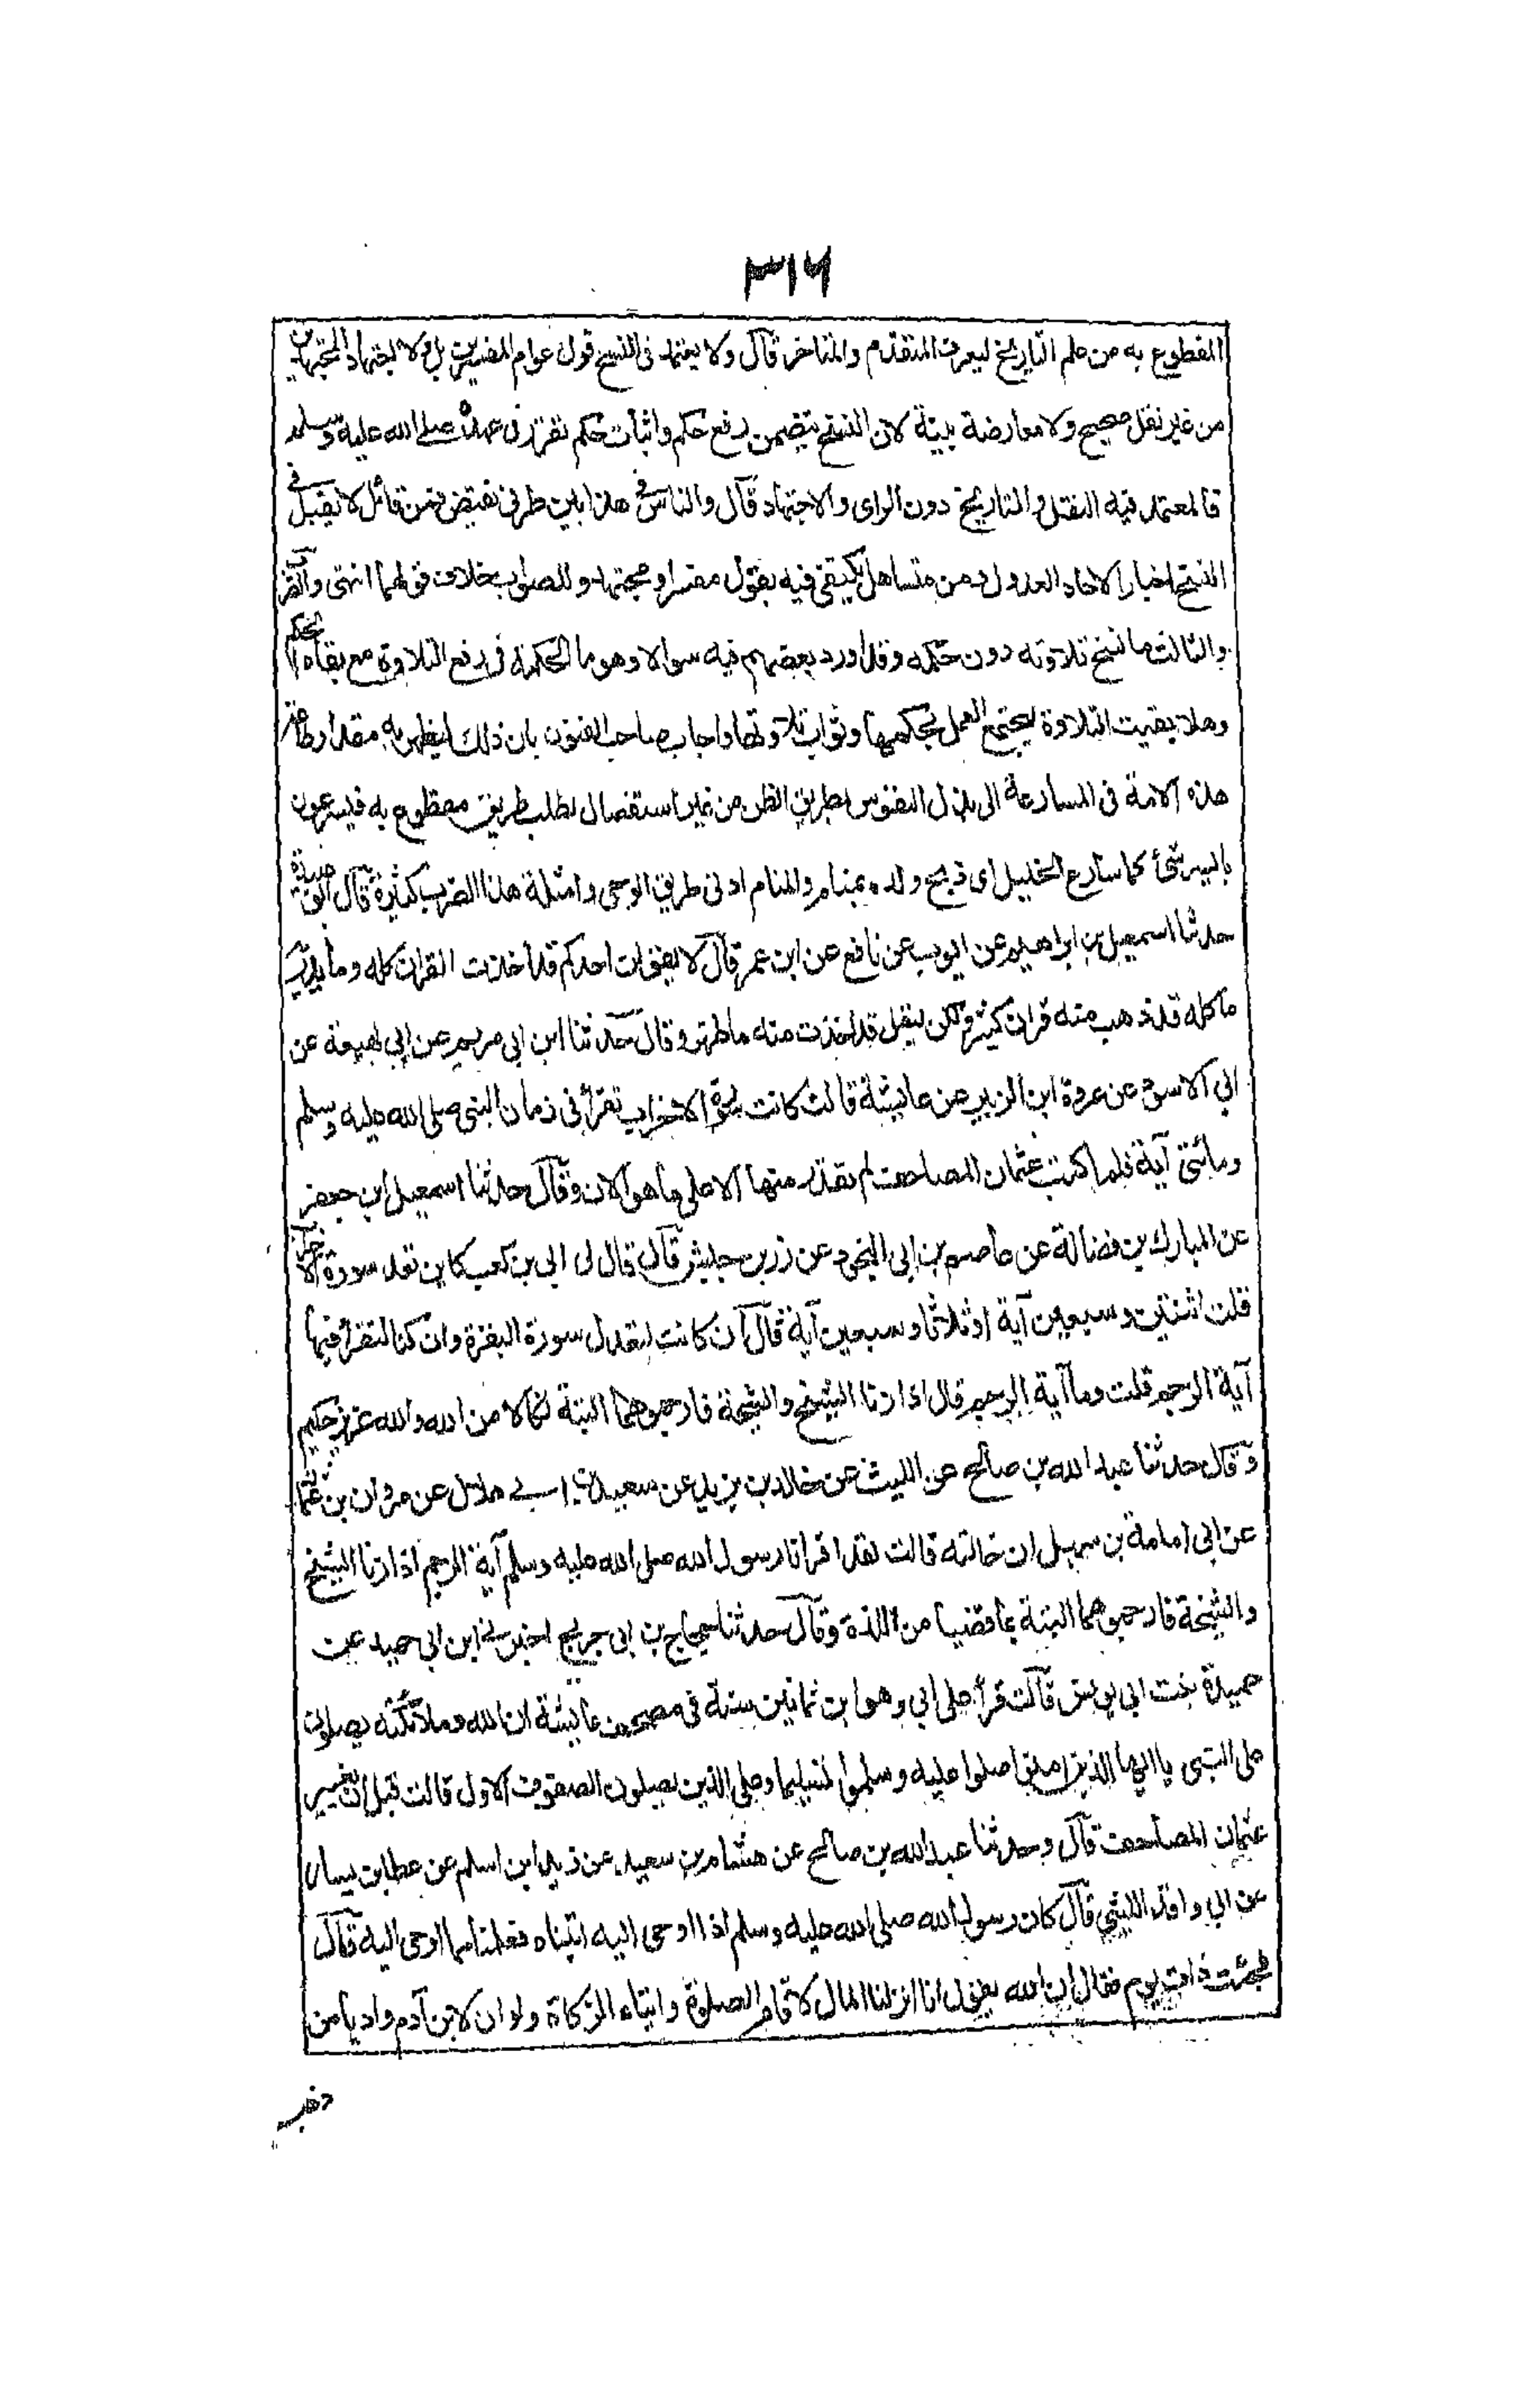 ٣١٦
المقطوع به من علم التاريخ ليعرف المتقدم والمتاخر قال ولا يعتمد في النسخ قول عوام المفسرين بل ولا اجتهاد المجتهدين
من غير نقل صحيح ولا معارضة بينة لان النسخ يتضمن رفع حكم واثبات حكم تقرر في عهده صلى الله عليه وسلم
فالمعتمد فيه النقل والتاريخ دون الراى والاجتهاد قال والناس في هذا بين طرفى نقيض فمن قائل لا يقبل في
النسخ اخبار الاحاد العدول ومن متساهل يكتفى فيه بقول مفسر او مجتهد والصواب خلاف قولهما انتهى والضرب
الثالث ما نسخ تلاوته دون حكمه وقد اورد بعضهم فيه سوالا وهو ما الحكمة فى رفع التلاوة مع بقاء الحكم
وهلا بقيت التلاوة ليجتمع العمل بحكمها وثواب تلاوتها واجاب صاحب الفنون بان ذلك ليظهر به مقدار طاعة
هذه الامة فى المسارعة الى بذل النفوس بطريق الظن من غير استفصال لطلب طريق مقطوع به فيسرعون
بايسر شئ كما سارع الخليل اى ذبح ولده بمنام والمنام ادنى طريق الوحى وامثلة هذا الضرب كثيرة قال ابو عبيدة
حدثنا اسمعيل بن ابراهيم عن ايوب عن نافع عن ابن عمر قال لا يقولن احدكم قد اخذت القران كله وما يدريه
ما كله قد ذهب منه قران كثير ولكن ليقل قد اخذت منه ما ظهر وقال حدثنا ابن ابى مريم عن ابى لهيعة عن
ابى الاسود عن عروة ابن الزبير عن عايشة قالت كانت سورة الاحزاب تقرأ فى زمان النبى صلى الله عليه وسلم
ومائتى آية فلما كتب عثمان المصاحف لم نقدر منها الا على ما هو الان وقال حدثنا اسمعيل ابن جعفر
عن المبارك بن فضالة عن عاصم بن ابى النجود عن زر بن حبيش قال قال لى ابى بن كعب كاين تعد سورة الاحزاب
قلت اثنتين وسبعين آية او ثلاثا وسبعين آية قال ان كانت لتعدل سورة البقرة وان كنا لنقرأ فيها
آية الرجم قلت وما آية الرجم قال اذا زنا الشيخ والشيخة فارجموهما البتة نكالا من الله والله عزيز حكيم
وقال حدثنا عبد الله بن صالح عن الليث عن خالد بن يزيد عن سعيد بن ابى هلال عن مروان بن عثمان
عن ابى امامة بن سهل ان خالته قالت لقد اقرانا رسول الله صلى الله عليه وسلم آية الرجم اذا زنا الشيخ
والشيخة فارجموهما البتة بما قضيا من اللذة وقال حدثنا حجاج بن ابى جريج اخبرنى ابن ابى حميد عن
حميدة بنت ابى يونس قالت قرأ على ابى وهو ابن ثمانين سنة فى مصحف عايشة ان الله وملائكته يصلون
على النبى يا ايها الذين امنوا صلوا عليه وسلموا تسليما وعلى الذين يصلون الصفوف الاول قالت قبل ان يغير
عثمان المصاحف قال وحدثنا عبد الله بن صالح عن هشام بن سعيد عن زيد ابن اسلم عن عطا بن يسار
عن ابى واقد الليثى قال كان رسول الله صلى الله عليه وسلم اذا اوحى اليه اتيناه فعلمنا مما اوحى اليه قال
فجئت ذات يوم فقال ان الله يقول انا انزلنا المال لاقام الصلوة وايتاء الزكاة ولو ان لابن آدم واديا من
ذهب